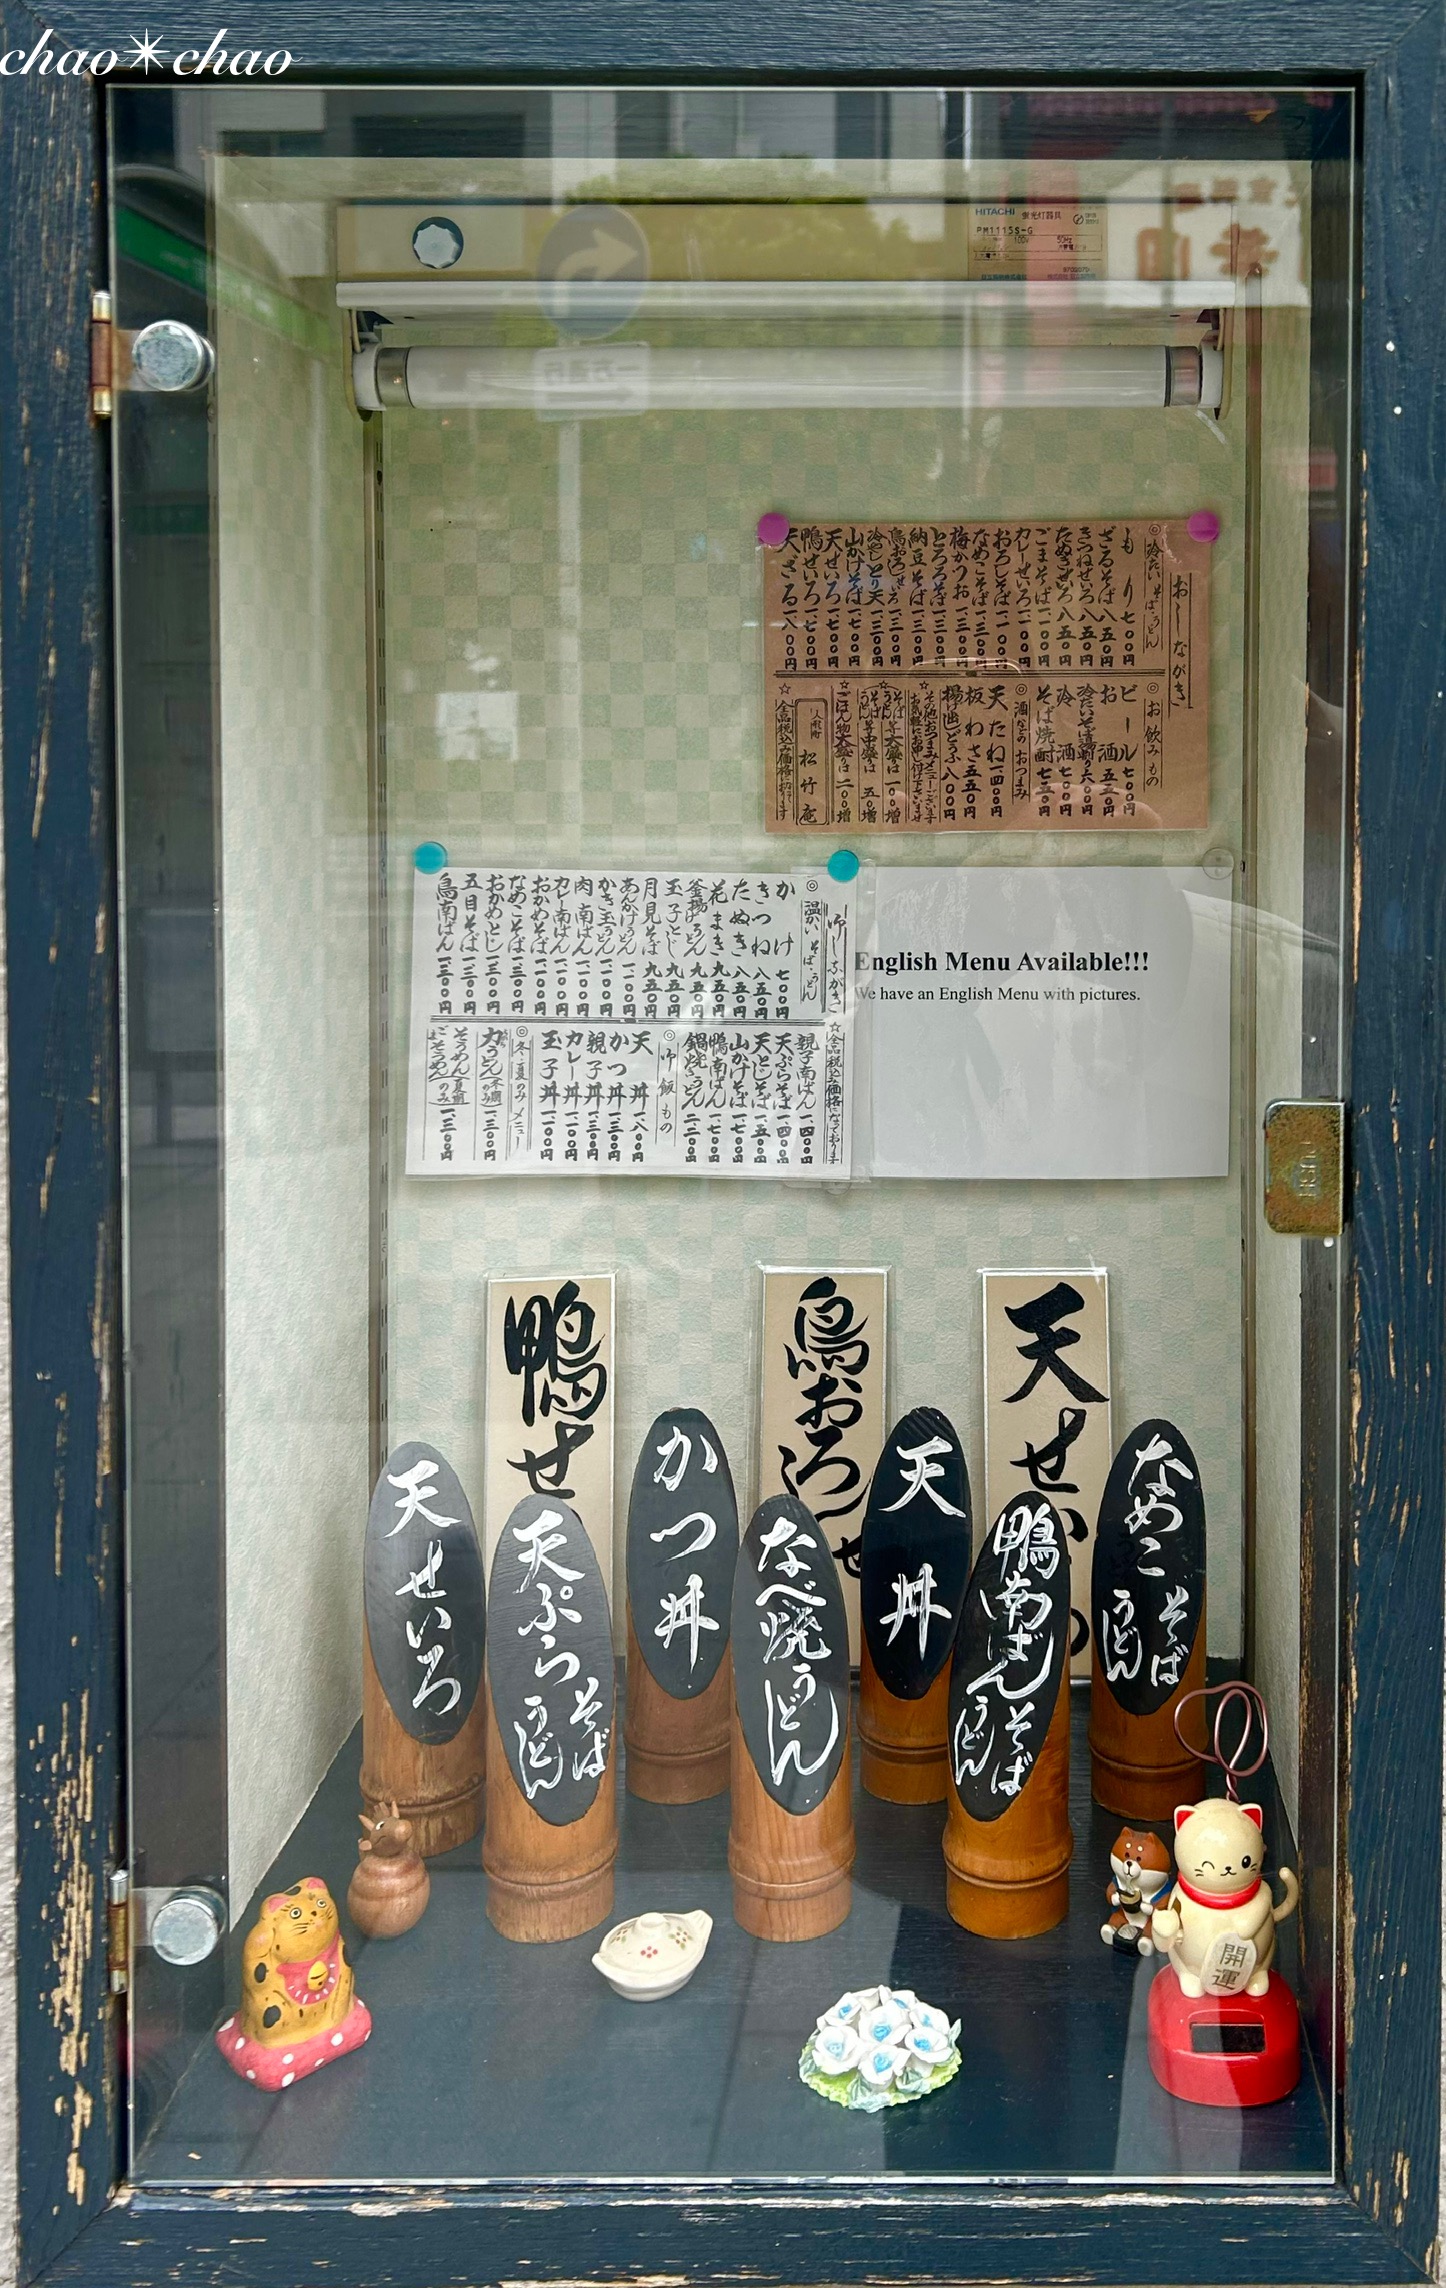 chao✴chao
HITACHI 蛍光灯器具
PM1115S-G
100V 50Hz
おしながき
◎冷たいそば・うどん
もり 七〇〇円
ざるそば 八五〇円
きつねせいろ 八五〇円
たぬきせいろ 八五〇円
ごまそば 一、一〇〇円
カレーせいろ 一、一〇〇円
おろしそば 一、一〇〇円
なめこそば 一、三〇〇円
梅かつお 一、三〇〇円
とろろそば 一、三〇〇円
納豆そば 一、三〇〇円
鳥おろしせいろ 一、三〇〇円
冷やしとり天 一、三〇〇円
山かけそば 一、七〇〇円
天せいろ 一、七〇〇円
鴨せいろ 一、七〇〇円
天ざる 一、八〇〇円
◎お飲みもの
ビール 七〇〇円
お酒 五五〇円
冷酒 七〇〇円
そば焼酎 七五〇円
◎酒などのおつまみ
天たね 一、四〇〇円
板わさ 五五〇円
揚げ出しどうふ 八〇〇円
☆その他おつまみメニューございます
お気軽にお申し付け下さいませ
☆そば・うどん等大盛りは 一〇〇増
☆そば・うどん等中盛りは 五〇増
☆ごはん物大盛りは 二〇〇増
人形町 松竹庵
☆全品税込み価格に
御しながき
☆全品税込み価格になっております
◎温かいそば・うどん
かけ 七〇〇円
きつね 八五〇円
たぬき 八五〇円
花まき 九五〇円
釜揚げうどん 九五〇円
玉子とじ 九五〇円
月見そば 九五〇円
あんかけうどん 一、一〇〇円
かき玉うどん 一、一〇〇円
肉南ばん 一、一〇〇円
カレー南ばん 一、一〇〇円
おかめそば 一、一〇〇円
なめこそば 一、三〇〇円
おかめとじ 一、三〇〇円
五目そば 一、三〇〇円
鳥南ばん 一、三〇〇円
親子南ばん 一、四〇〇円
天ぷらそば 一、四〇〇円
天とじそば 一、五〇〇円
山かけそば 一、七〇〇円
鴨南ばん 一、七〇〇円
鍋焼うどん 二、二〇〇円
◎御飯もの
天丼 一、八〇〇円
かつ丼 一、三〇〇円
親子丼 一、三〇〇円
カレー丼 一、一〇〇円
玉子丼 一、一〇〇円
◎冬・夏のみメニュー
力うどん 一、三〇〇円
そうめん
ごそうめん 一、三〇〇円
English Menu Available!!!
We have an English Menu with pictures.
PUSH
天せい
鳥おろしせ
鴨せ
なめこ そば うどん
天丼
かつ丼
天せいろ
鴨南ばん そば うどん
なべ焼うどん
天ぷら そば うどん
開運